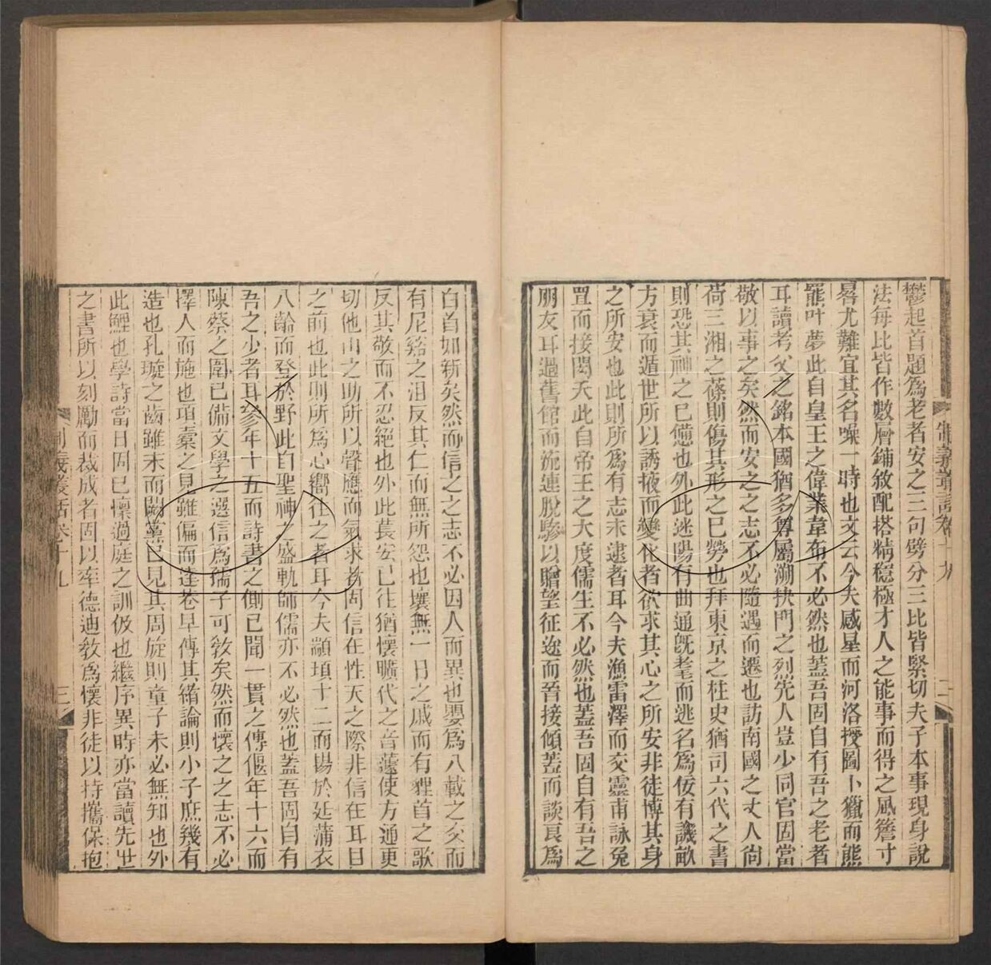 鬱起首題爲老者安之三句劈分三比皆緊切夫子本事現身說
法每比皆作數層鋪敘配搭精穩極才人之能事而得之風簷寸
晷尤難宜其名噪一時也文云今夫感星而河洛授圖卜獵而熊
羆叶夢此自皇王之偉業韋布不必然也蓋吾固自有吾之老者
耳讀考父之銘本國猶多尊屬溯抉門之烈先人豈少同官固當
敬以事之矣然而安之之志不必隨遇而遷也訪南國之丈人尙
荷三湘之蓧則傷其形之已勞也拜東京之柱史猶司六代之書
則恐其神之已憊也外此迷陽有曲通旣耄而逃名爲佞有譏畝
方衰而遁世所以誘掖而變化者欲求其心之所安非徒博其身
之所安也此則所爲有志未逮者耳今夫漁雷澤而交靈甫詠兔
罝而接閎夭此自帝王之大度儒生不必然也蓋吾固自有吾之
朋友耳過舊館而流連脫驂以贈望征途而晉接傾蓋而談良爲
制義叢話卷十九
二
白首如新矣然而信之之志不必因人而異也嬰爲八載之交而
有尼谿之沮反其仁而無所怨也壤無一日之戚而有貍首之歌
反其敬而不忍絕也外此萇安已往猶懷曠代之音蘧使方通更
切他山之助所以聲應而氣求者固信在性天之際非信在耳目
之前也此則所爲心嚮往之者耳今夫顓頊十二而賜於延蒲衣
八齡而登於野此自聖神之盛軌師儒亦不必然也蓋吾固自有
吾之少者耳參年十五而詩書之側已聞一貫之傳偃年十六而
陳蔡之圍已備文學之選信爲孺子可敎矣然而懷之之志不必
擇人而施也項橐之見雖偏而逢巷早傳其緒論則小子庶幾有
造也孔璇之齒雖末而闕黨已見其周旋則童子未必無知也外
此鯉也學詩當日固已懷過庭之訓伋也繼序異時亦當讀先世
之書所以刻勵而裁成者固以率德迪敎爲懷非徒以持攜保抱
制義叢話卷十九
三